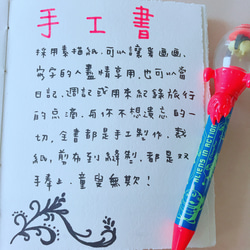 手工書
採用素描紙，可以讓書画畫、
寫字的人盡情享用，也可以當
日記、週記或用來紀錄旅行
的点滴，与你不想遺忘的一
切，全書都是手工製作，裁
紙，剪布到縫製，都是双
手奉上，童叟無欺！
ALIENS IN ACTION